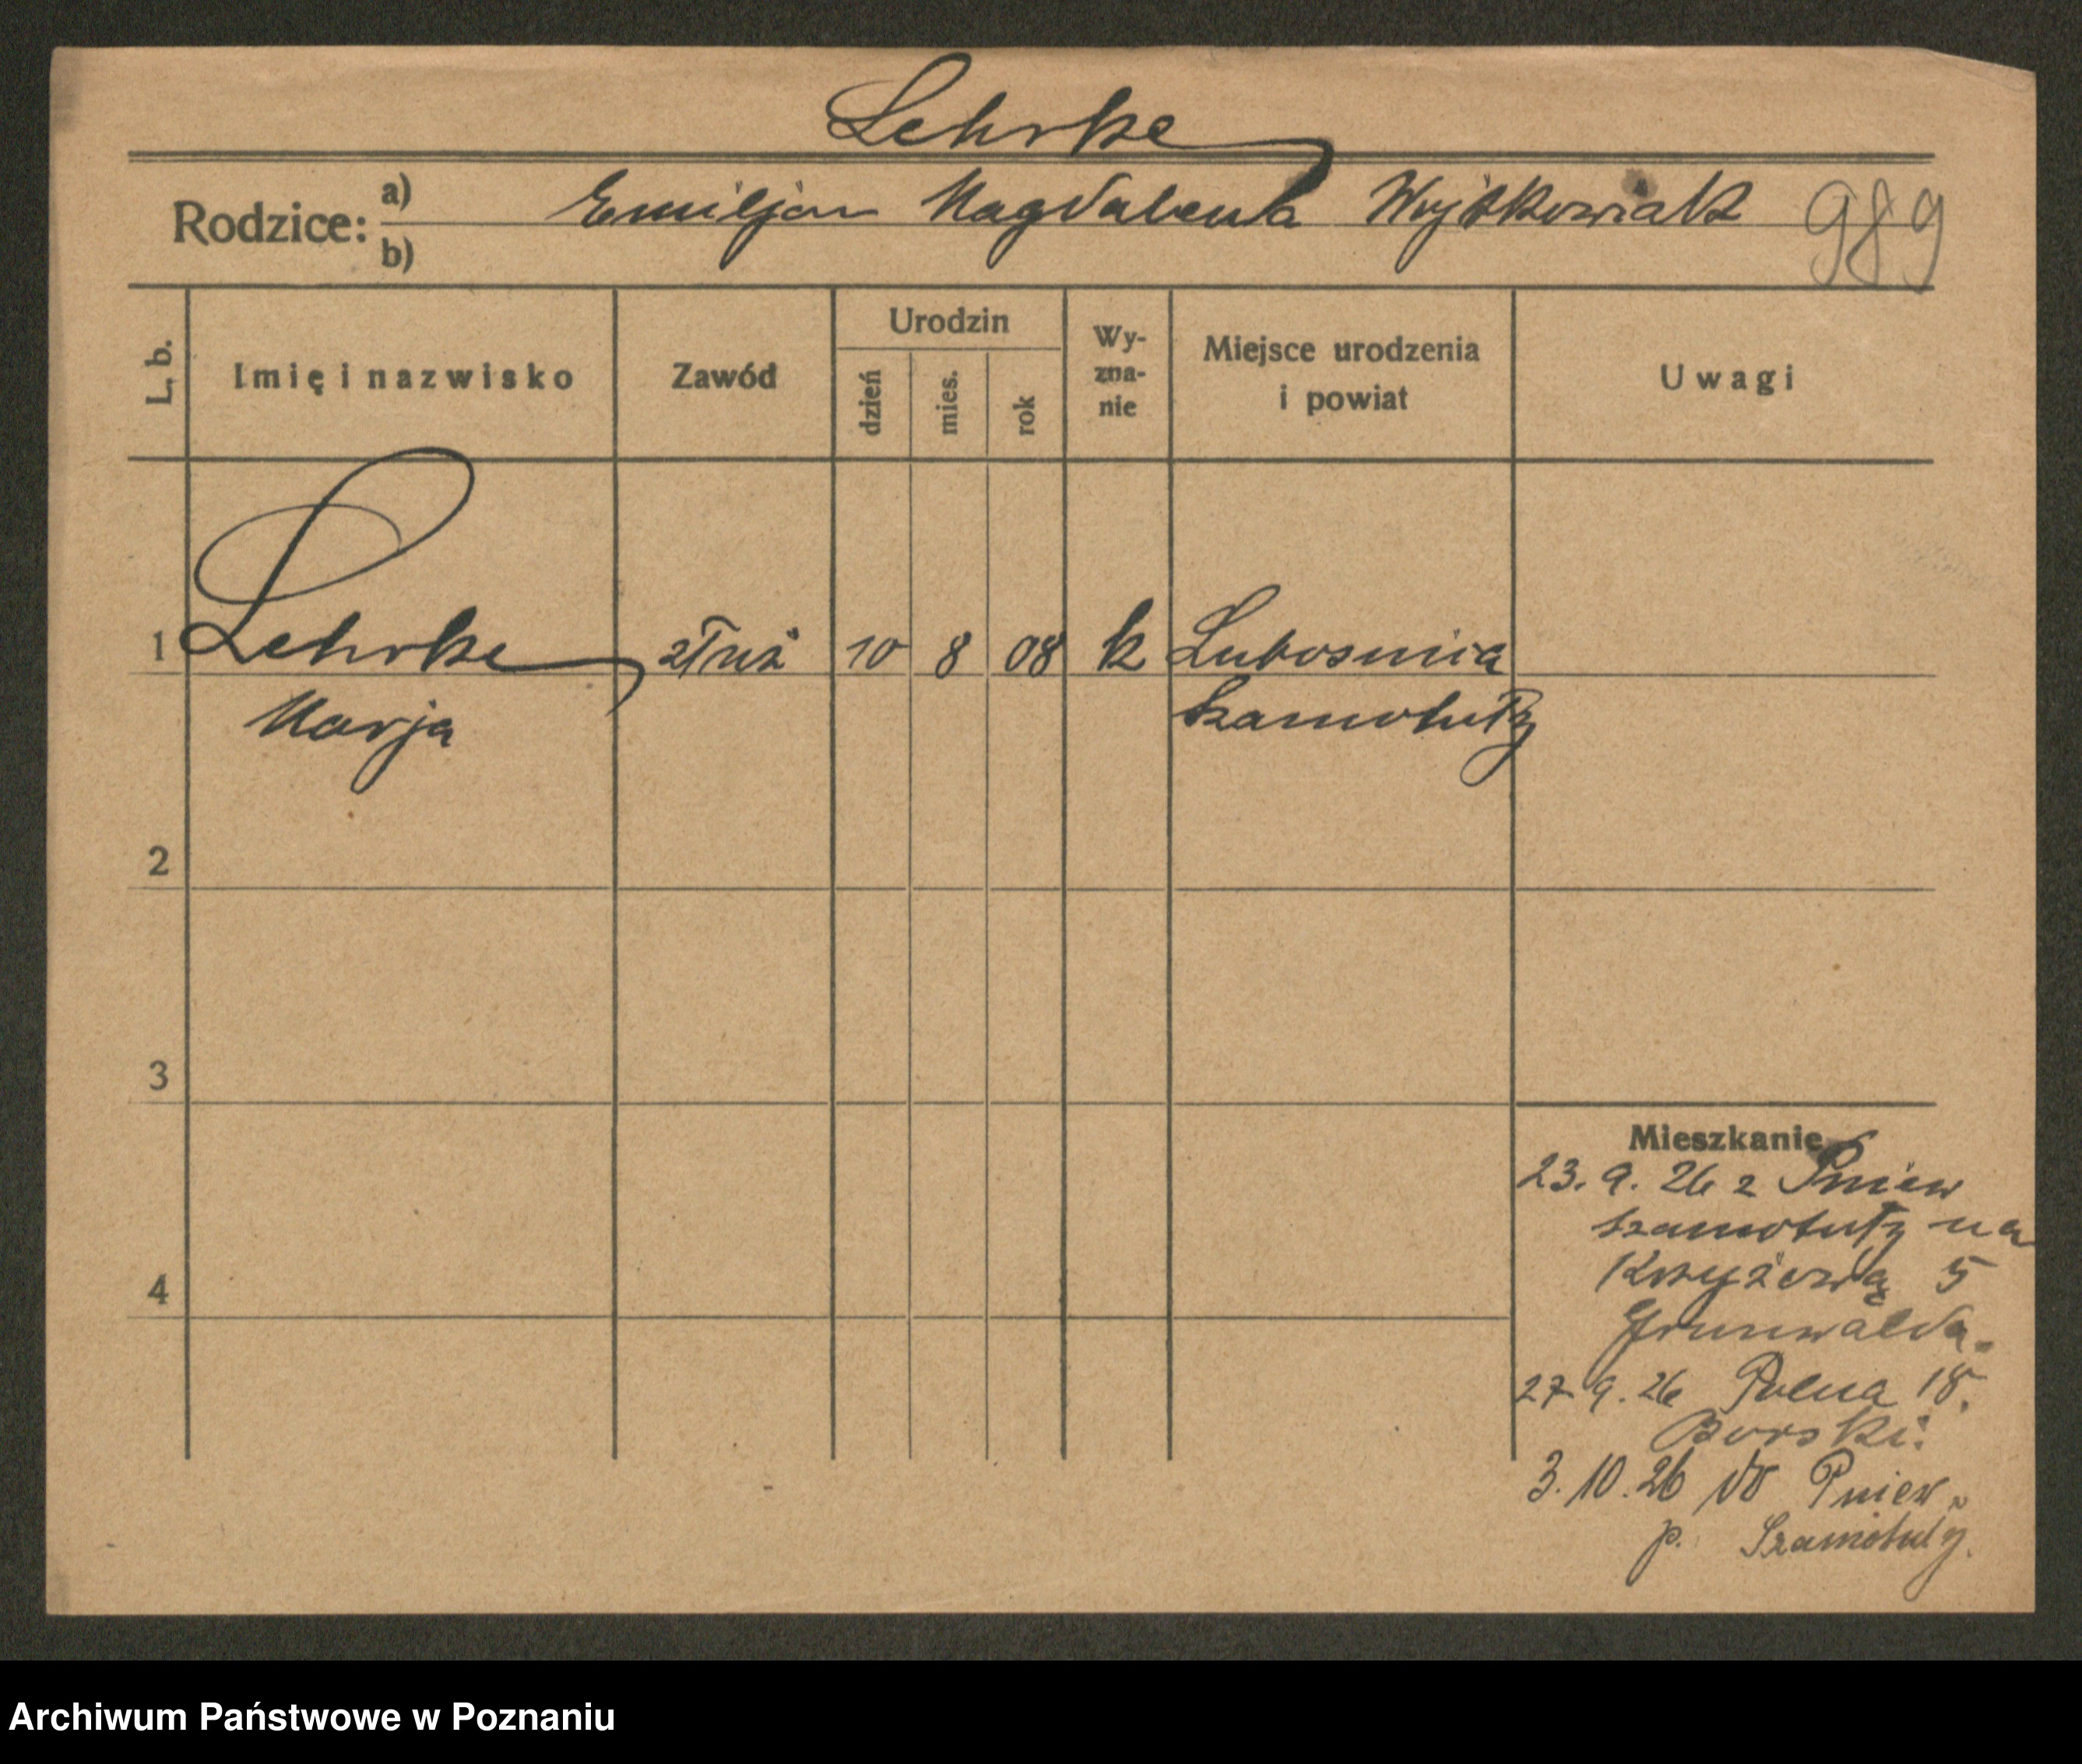 Lehrke
Rodzice: a) Emiljan Magdalena Wojtkowiak 989
b)
L. b.
Imię i nazwisko
Zawód
Urodzin
dzień
mies.
rok
Wy-
zna-
nie
Miejsce urodzenia
i powiat
Uwagi
1 Lehrke służ 10 8 08 k Lubosinia
Marja Szamotuły
2
3
4
Mieszkanie
23. 9. 26 z Pniew
Szamotuły na
Krzyżową 5
Grunwalda.
27 9. 26 Polna 18.
Borski.
3. 10. 26 do Pniew
p. Szamotuły.
Archiwum Państwowe w Poznaniu